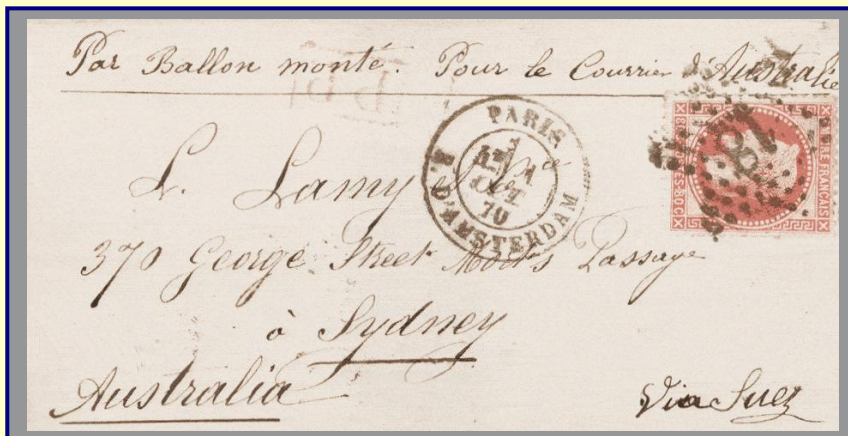 Par Ballon monté. Pour le Courrier d'Australie
PD
PARIS
1
OCT
70
R. D'AMSTERDAM
18
FRANÇAIS
L. Lamy
370 George Street Morts Passage
à Sydney
Australia
Via Suez